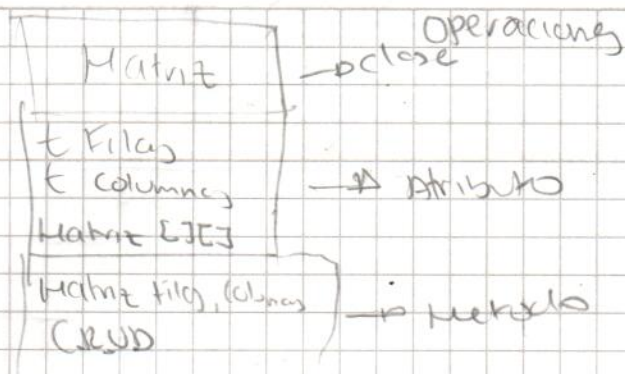 Operaciones
Matriz → clase
t Filas
t columnas → Atributo
Matriz [][]
Matriz filas, columnas → Metodo
CRUD